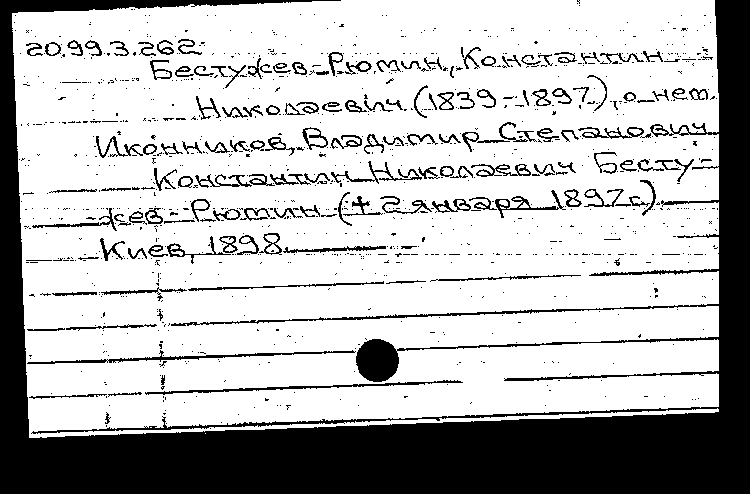 20.99.3.262.
Бестужев-Рюмин, Константин
Николаевич (1839-1897), о нем.
Иконников, Владимир Степанович
Константин Николаевич Бесту-
жев-Рюмин († 2 января 1897 г.).
Киев, 1898.